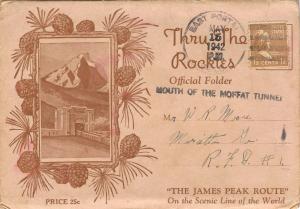 EAST PORTAL
MAY
16
1942
Thru The
Rockies
Official Folder
MOUTH OF THE MOFFAT TUNNEL
1½ CENTS
Mr. W R Moore
R.F.D. # 1.
PRICE 25c
"THE JAMES PEAK ROUTE"
On the Scenic Line of the World